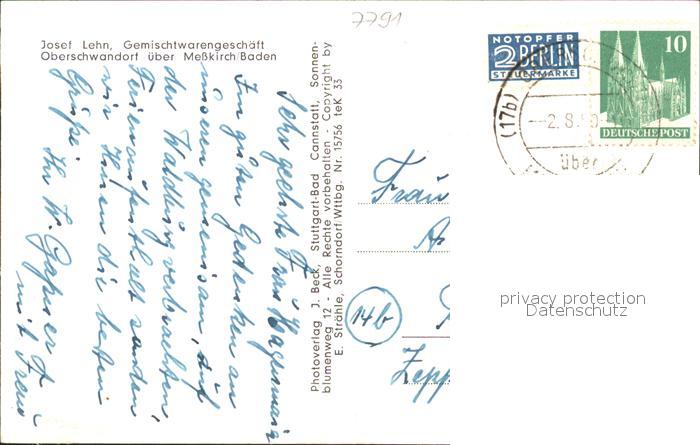 7791
Josef Lehn, Gemischtwarengeschäft
Oberschwandorf über Meßkirch/Baden
NOTOPFER
2 BERLIN
STEUERMARKE
10
DEUTSCHE POST
(17b)
-2.8.
über
Photoverlag J. Beck, Stuttgart-Bad Cannstatt, Sonnen-
blumenweg 12 - Alle Rechte vorbehalten - Copyright by
E. Strähle, Schorndorf/Wttbg. Nr. 15/56 teK 35
Sehr geehrte Frau
Im guten Gedenken an
unseren gemeinsam, auf
der Waldburg verbrachten
Ferienaufenthalt senden
wir Ihnen die besten
Grüße Ihr W.
mit Frau
Frau
14b
Zepp
privacy protection
Datenschutz